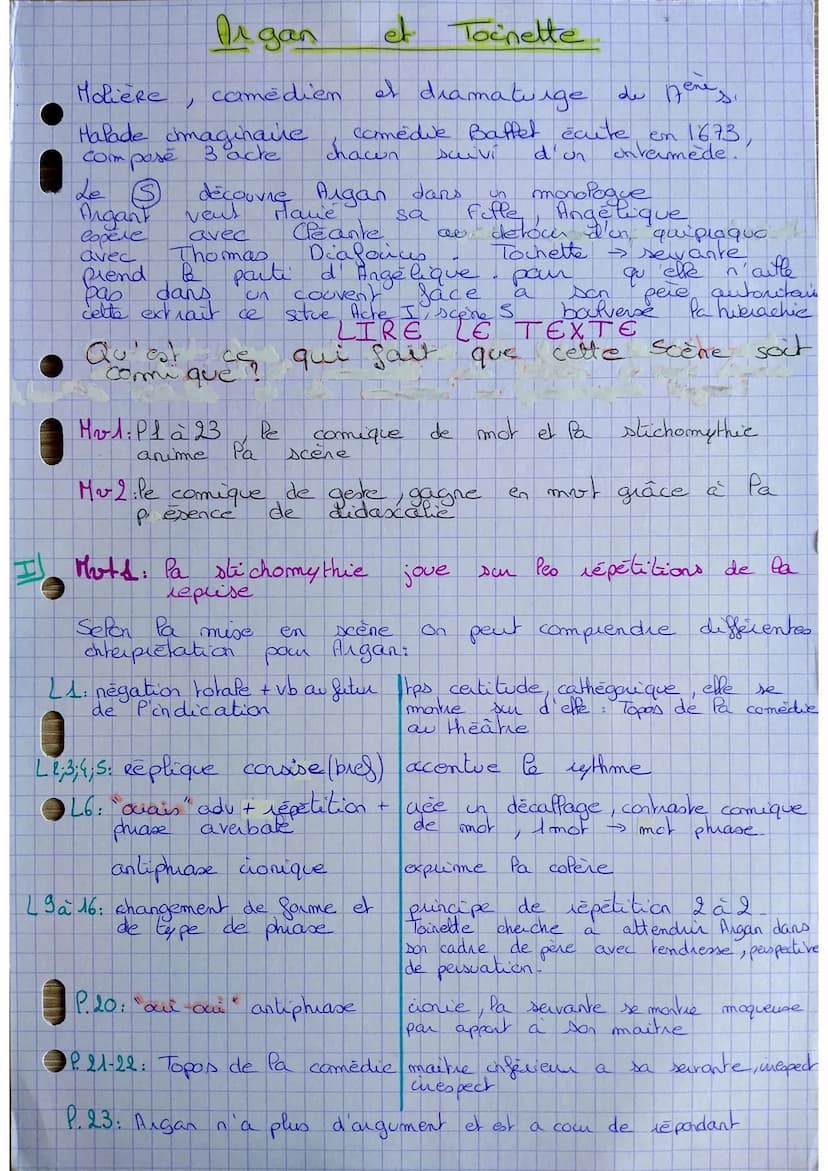 Argan et Toinette
Molière, comédien et dramaturge du 17ème s.
Malade imaginaire, comédie Ballet écrite en 1673,
composé 3 acte chacun suivi d'un intermède.
Le (S) découvre Argan dans un monologue
Argant veut Marié sa fille, Angélique
espère avec Cléante au detour d'un quiproquo
avec Thomas Diafoirus. Toinette → servante
prend le parti d'Angélique. pour qu'elle n'aille
pas dans un couvent face a son père autoritaire
cette extrait ce situe Acte I, scène 5 boulverse la hiérarchie
LIRE LE TEXTE
Qu'est ce qui fait que cette scène soit
comique?
Mv1: l1 à 23, le comique de mot et la stichomythie
anime la scène
Mv2: le comique de geste, gagne en mot grâce à la
présence de didascalie
I/ Mvt1: la stichomythie joue sur les répétitions de la
reprise
Selon la mise en scène on peut comprendre différentes
interprétation pour Argan:
L1: négation totale + vb au futur
de l'indication
tps certitude, cathégorique, elle se
montre sur d'elle: Topos de la comédie
au théâtre
L2;3;4;5: réplique consise (bref)
accentue le rythme
L6: "ouais" adv + répétition +
phrase averbale
crée un décallage, contraste comique
de mot, 1 mot → mot phrase.
antiphrase ironique
exprime la colère
L9 à 16: changement de forme et
de type de phrase
principe de répétition 2 à 2.
Toinette cherche a attendrir Argan dans
son cadre de père avec tendresse, perspective
de persuation.
l.20: "oui-oui" antiphrase
ironie, la servante se montre moqueuse
par apport à son maitre
l.21-22: Topos de la comédie
maitre inférieur a sa servante, irrespect
irrespect
l.23: Argan n'a plus d'argument et est a cour de répondant